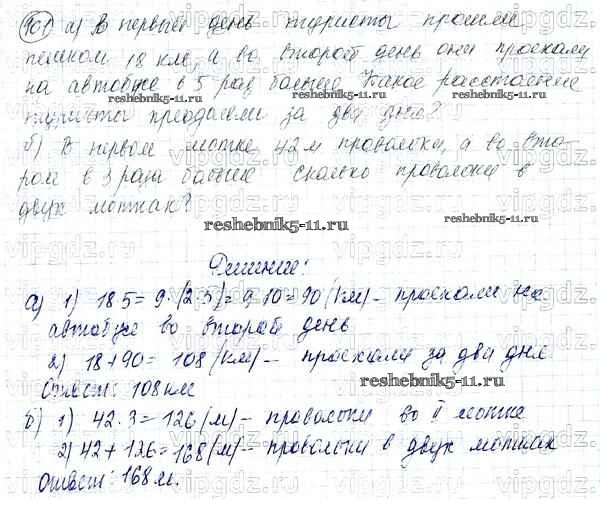 901 а) В первый день туристы прошли
пешком 18 км, а во второй день они проехали
на автобусе в 5 раз больше. Какое расстояние
reshebnik5-11.ru reshebnik5-11.ru
туристы преодолели за два дня?
б) В первом мотке 42 м проволоки, а во вто-
ром в 3 раза больше сколько проволоки в
двух мотках?
reshebnik5-11.ru
Решение:
а) 1) 18·5 = 9·(2·5) = 9·10 = 90 (км) – проехали на
автобусе во второй день
2) 18+90 = 108 (км) – проехали за два дня
Ответ: 108 км
reshebnik5-11.ru
б) 1) 42·3 = 126 (м) – проволоки во II мотке
2) 42+126 = 168 (м) – проволоки в двух мотках
Ответ: 168 м.
vipgdz.ru